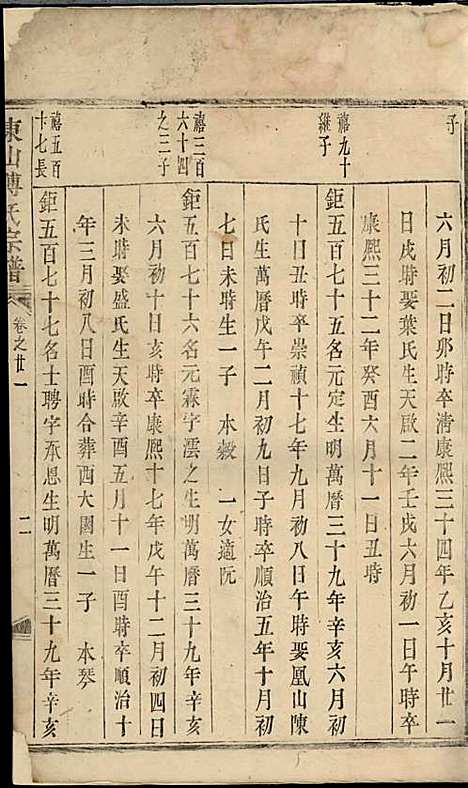 子
六月初二日卯時卒清康熙三十四年乙亥十月廿一
日戌時娶葉氏生天啟二年壬戌六月初一日午時卒
康熙三十二年癸酉六月十一日丑時
禧九十
繼子
鉅五百七十五名元定生明萬曆三十九年辛亥六月初
十日丑時卒崇禎十七年九月初八日卯時娶鳳山陳
氏生萬曆戊午二月初九日子時卒順治五年十月初
七日未時生一子　本穀　一女適阮
禧三百
六十四
之三子
鉅五百七十六名元霖字澐之生明萬曆三十九年辛亥
六月初十日亥時卒康熙十七年戊午十二月初四日
未時娶盛氏生天啟辛酉五月十一日酉時卒順治十
年三月初八日酉時合葬西大園生一子　本琴
禧五百
廿七長
鉅五百七十七名士聘字承恩生明萬曆三十九年辛亥
東山傅氏宗譜
卷之廿一
二